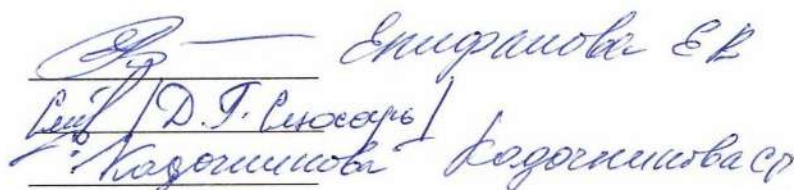 Епифанова ЕВ
/Д.Г. Слюсарь/
"Кадочникова" Кадочникова СР